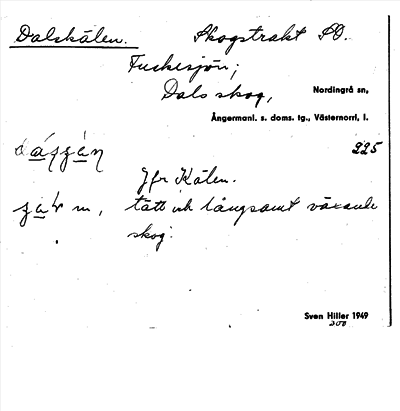 Dalskälen. Skogstrakt SO.
Fuskesjön;
Dals skog, Nordingrå sn,
Ångermanl. s. doms. tg., Västernorrl. l.
225
Jfr Kälen.
m, tätt och långsamt växande
skog.
Sven Hiller 1949